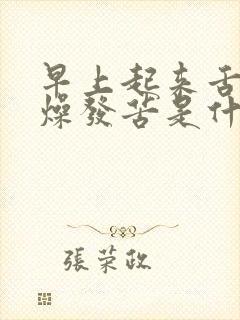 早上起来舌
燥發苦是什
張荣政